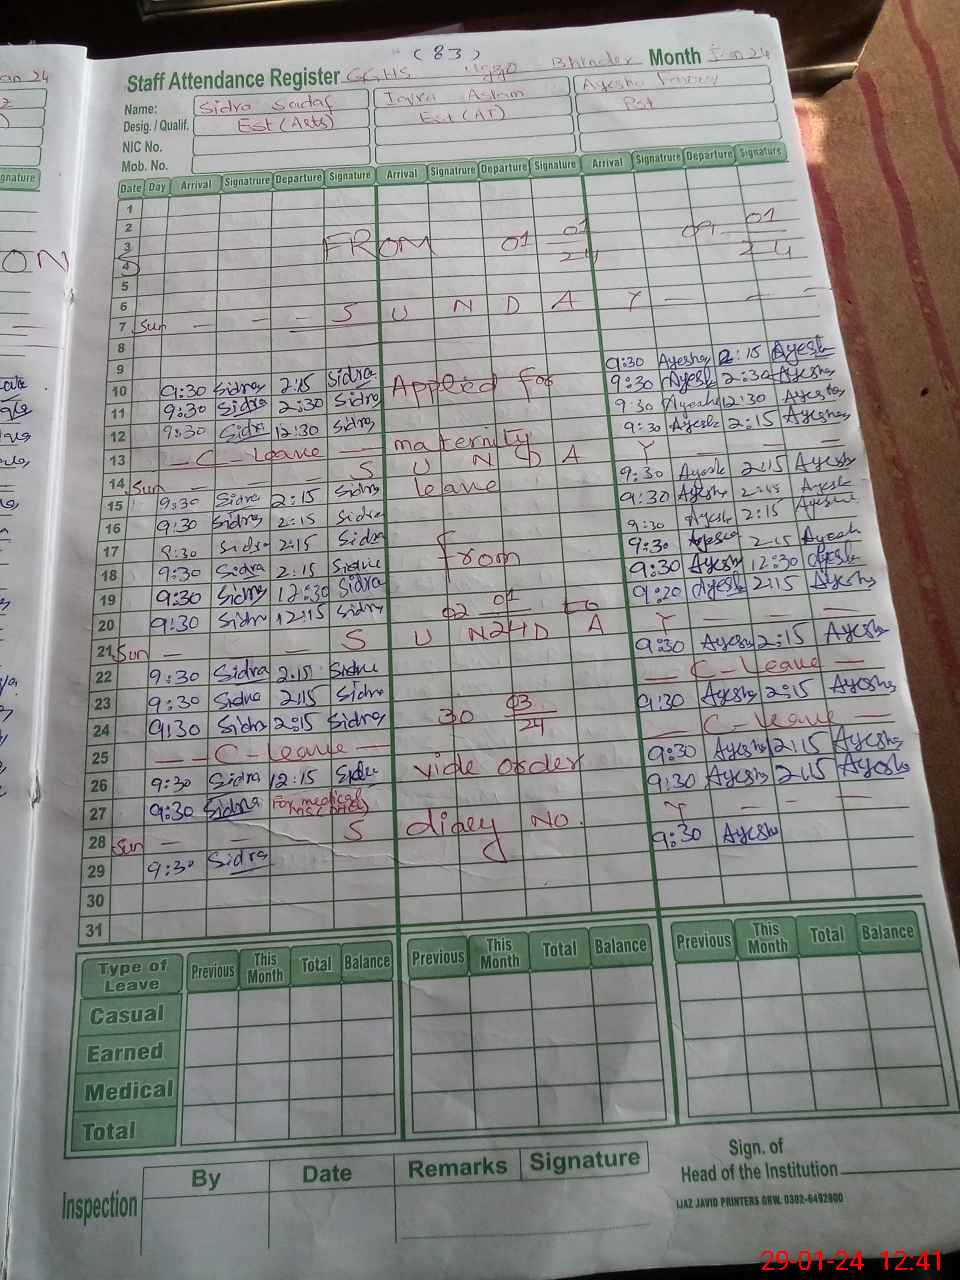 an 24
gnature
ON
( 83 )
Staff Attendance Register GGHS Bhinder Month Jan 24
Name: Sidra Sadaf Iqra Aslam Ayesha
Desig. / Qualif. Est (Arts) Est (AT) Pst
NIC No.
Mob. No.
Date Day Arrival Signatrure Departure Signature Arrival Signatrure Departure Signature Arrival Signatrure Departure Signature
1
2
3 FROM 01 01 24 01 24
4
5
6
7 Sun — — — S U N D A Y — — —
8
9 9:30 Ayesha 2:15 Ayesha
10 9:30 Sidra 2:15 Sidra Applied for 9:30 Ayesha 2:30 Ayesha
11 9:30 Sidra 2:30 Sidra 9:30 Ayesha 12:30 Ayesha
12 9:30 Sidra 12:30 Sidra 9:30 Ayesha 2:15 Ayesha
13 — C - Leave — maternity
14 Sun — — — S U N D A Y — — —
15 9:30 Sidra 2:15 Sidra leave 9:30 Ayesha 2:15 Ayesha
16 9:30 Sidra 2:15 Sidra 9:30 Ayesha 2:15 Ayesha
17 9:30 Sidra 2:15 Sidra 9:30 Ayesha 2:15 Ayesha
18 9:30 Sidra 2:15 Sidra From 9:30 Ayesha 2:15 Ayesha
19 9:30 Sidra 12:30 Sidra 9:30 Ayesha 12:30 Ayesha
20 9:30 Sidra 12:15 Sidra 02 01 24 to 9:20 Ayesha 2:15 Ayesha
21 Sun — — S U N D A Y — — —
22 9:30 Sidra 2:15 Sidra 9:30 Ayesha 2:15 Ayesha
23 9:30 Sidra 2:15 Sidra — C - Leave —
24 9:30 Sidra 2:15 Sidra 30 03 24 9:30 Ayesha 2:15 Ayesha
25 — C - Leave — — C - Leave —
26 9:30 Sidra 12:15 Sidra vide order 9:30 Ayesha 2:15 Ayesha
27 9:30 Sidra For medical 9:30 Ayesha 2:15 Ayesha
28 Sun — — S diary No. Y — — —
29 9:30 Sidra 9:30 Ayesha
30
31
Type of Leave Previous This Month Total Balance Previous This Month Total Balance Previous This Month Total Balance
Casual
Earned
Medical
Total
Inspection By Date Remarks Signature
Sign. of
Head of the Institution
IJAZ JAVID PRINTERS GRW. 0302-6492900
29-01-24 12:41